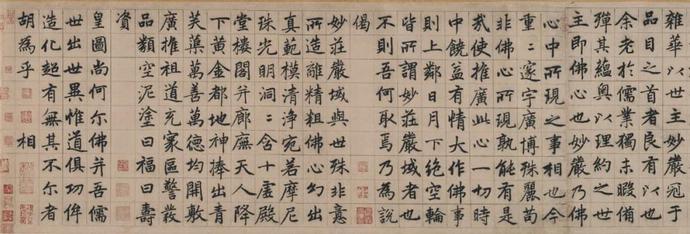 雜華以世主妙嚴冠于
品目之首者良有以也
余老於儒業獨未暇備
殫其蘊奥以理約之世
主即佛心也妙嚴乃佛
心中所現之事相也今
重〻邃宇廣博殊麗苟
非佛心所現孰能有是
哉使推廣此心一切時
中饒益有情大作佛事
則上鄰日月下絕空輪
皆所謂妙莊嚴域者也
不則吾何取焉乃為說
偈
妙莊嚴域與世殊非意
所造離精粗佛心幻出
真範模清淨宛若摩尼
珠光明洞〻含十虛殿
堂樓閣并廊廡天人降
下黃金都地神捧出青
芙蕖萬善萬德均開敷
廣推祖道充家區警發
品類空泥塗曰福曰壽
資
皇圖尚何尔佛并吾儒
世出世異惟道俱功侔
造化超有無其不尔者
胡為乎 相